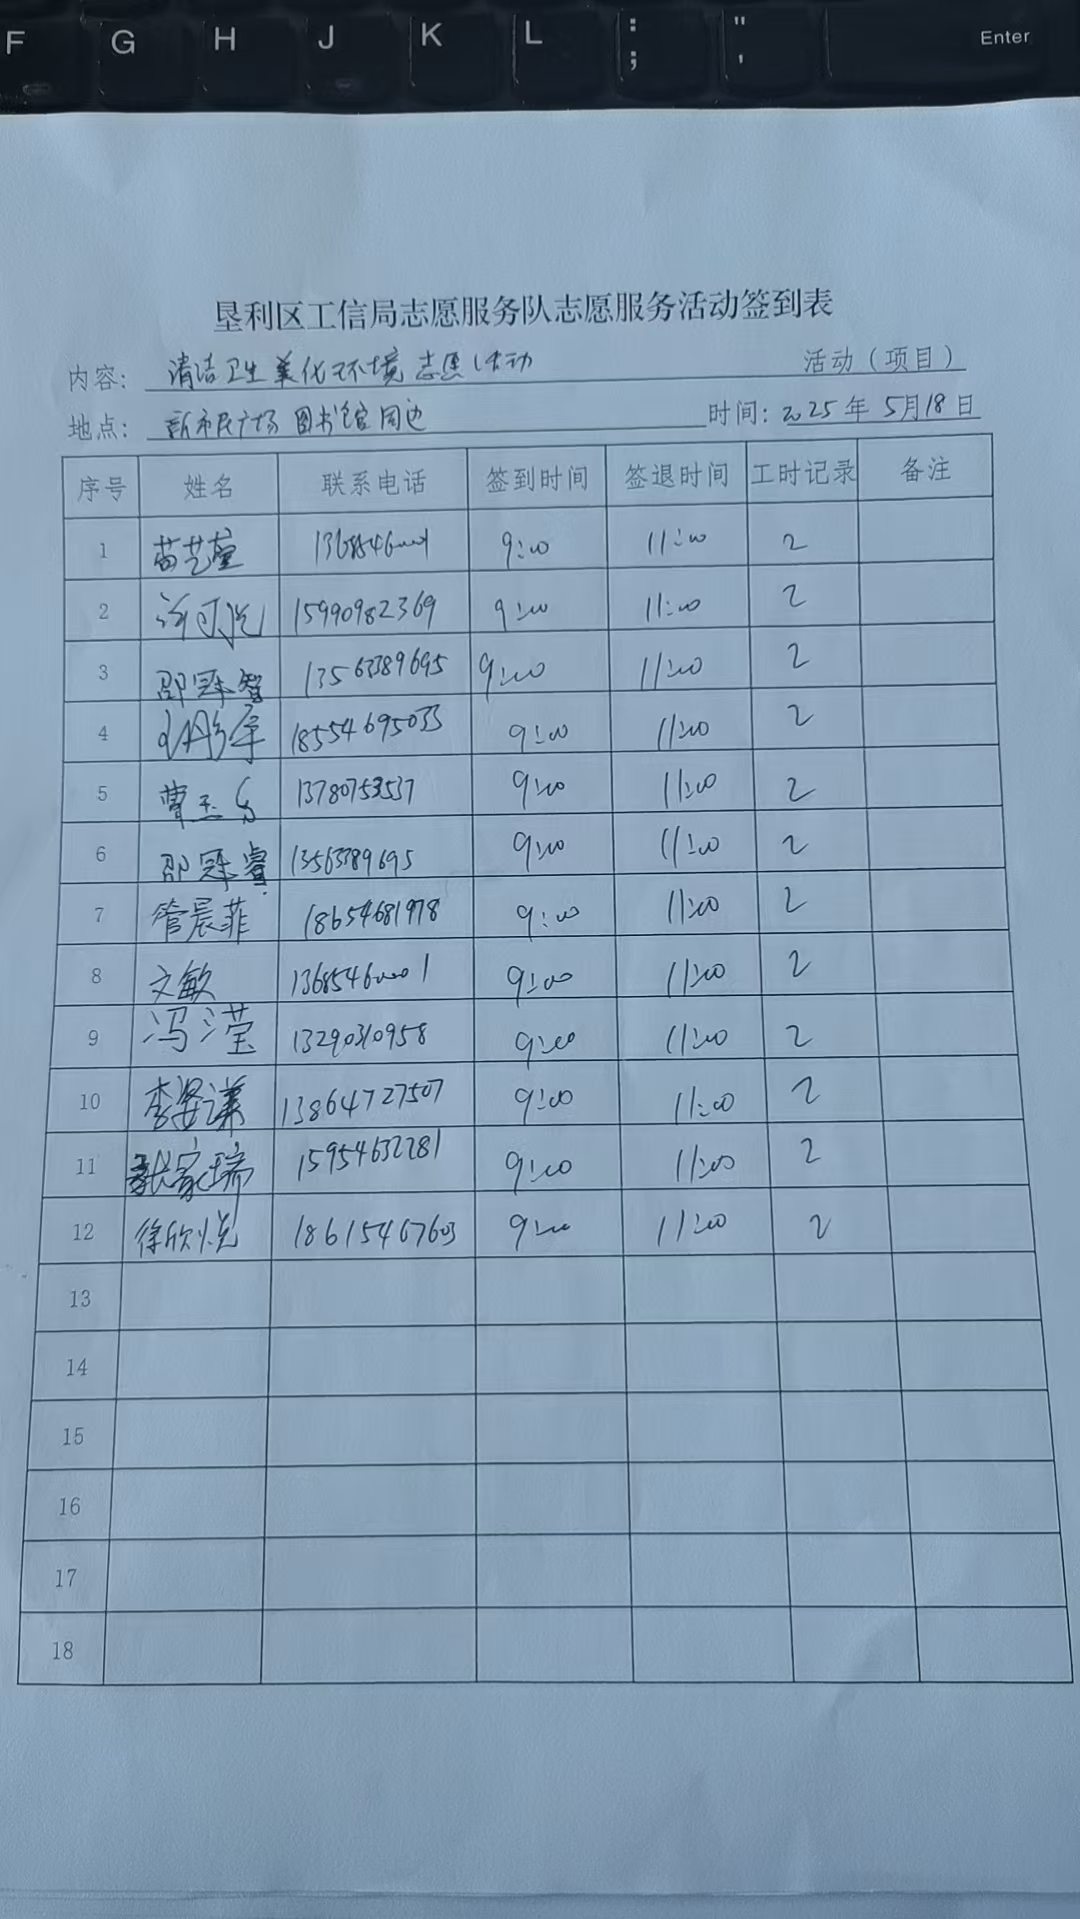 F G H J K L : ; " ' Enter
垦利区工信局志愿服务队志愿服务活动签到表
内容: 清洁卫生美化环境志愿活动 活动（项目）
地点: 新市民广场 图书馆周边 时间: 2025年 5月18日
序号 姓名 联系电话 签到时间 签退时间 工时记录 备注
1 苗艺蓝 13685460001 9:00 11:00 2
2 许可悦 15990982369 9:00 11:00 2
3 邵冠智 13563389695 9:00 11:00 2
4 18554695033 9:00 11:00 2
5 曹玉 13780753537 9:00 11:00 2
6 邵冠睿 13563389695 9:00 11:00 2
7 管晨菲 18654681978 9:00 11:00 2
8 文敏 13685460001 9:00 11:00 2
9 冯滢 13290310958 9:00 11:00 2
10 李晏谦 13864727507 9:00 11:00 2
11 张家瑞 15954632281 9:00 11:00 2
12 徐欣悦 18615467603 9:00 11:00 2
13
14
15
16
17
18